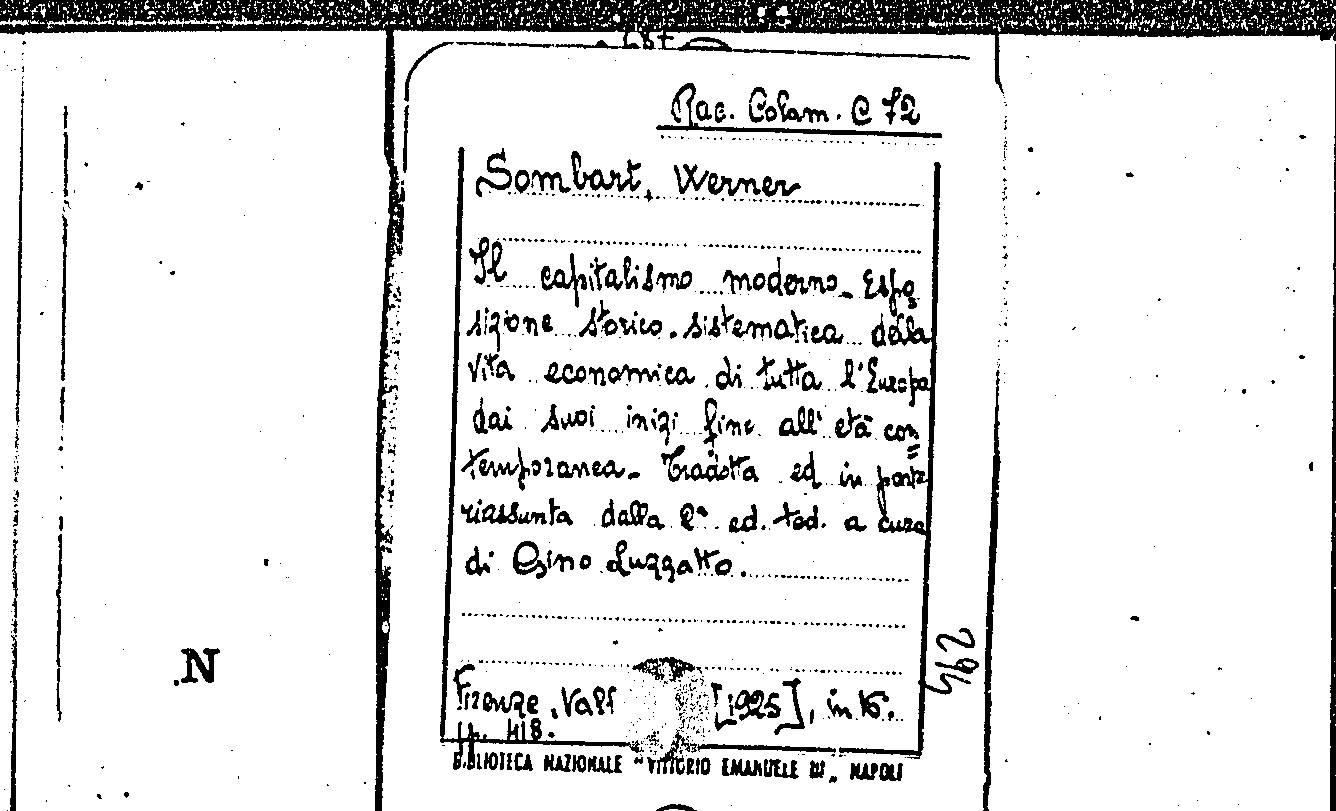 Rac. Colam. C 72
Sombart, Werner
Il capitalismo moderno. Espo=
sizione storico-sistematica della
vita economica di tutta l'Europa
dai suoi inizi fine all'età con=
temporanea. Tradotta ed in parte
riassunta dalla 2ª ed. ted. a cura
di Gino Luzzatto.
Firenze, Vall [1925], in 16.
pp. 418.
BIBLIOTECA NAZIONALE "VITTORIO EMANUELE III" NAPOLI
N